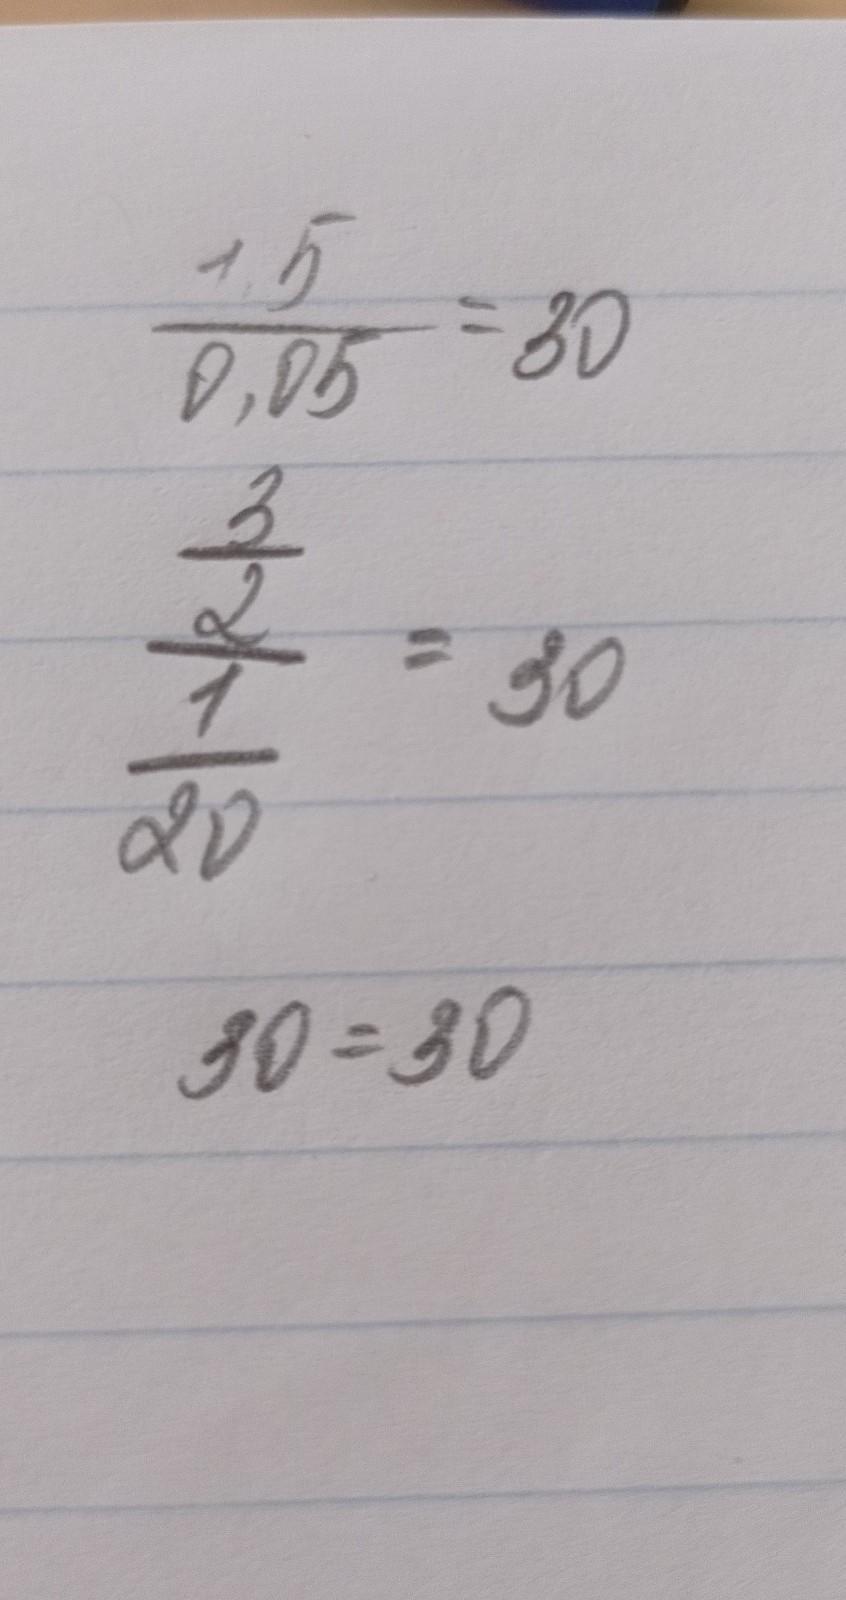 1,5
0,05 = 30
3
2
1
20 = 30
30 = 30